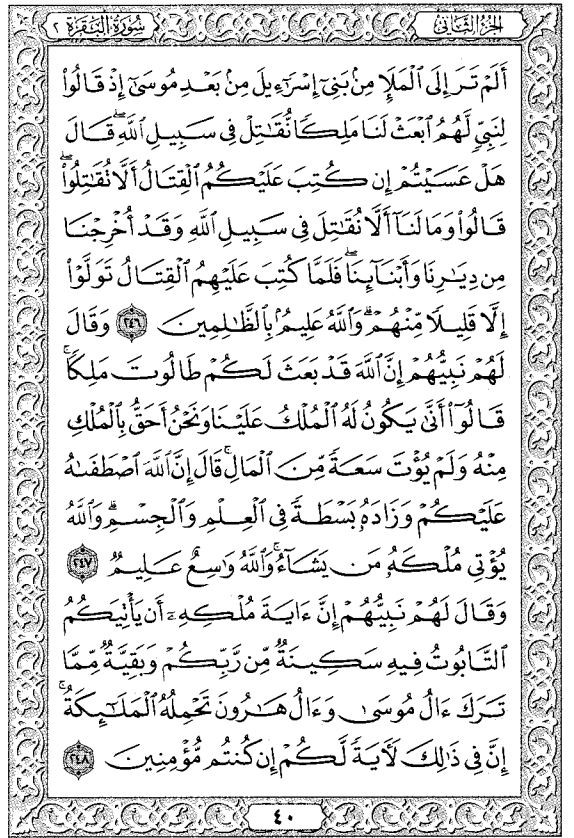 سُورَةُ البَقَرَةِ ٢
الجُزْءُ الثَّانِي
أَلَمْ تَرَ إِلَى ٱلْمَلَإِ مِنۢ بَنِىٓ إِسْرَٰٓءِيلَ مِنۢ بَعْدِ مُوسَىٰٓ إِذْ قَالُوا۟
لِنَبِىٍّ لَّهُمُ ٱبْعَثْ لَنَا مَلِكًا نُّقَٰتِلْ فِى سَبِيلِ ٱللَّهِ ۖ قَالَ
هَلْ عَسَيْتُمْ إِن كُتِبَ عَلَيْكُمُ ٱلْقِتَالُ أَلَّا تُقَٰتِلُوا۟ ۖ
قَالُوا۟ وَمَا لَنَآ أَلَّا نُقَٰتِلَ فِى سَبِيلِ ٱللَّهِ وَقَدْ أُخْرِجْنَا
مِن دِيَٰرِنَا وَأَبْنَآئِنَا ۖ فَلَمَّا كُتِبَ عَلَيْهِمُ ٱلْقِتَالُ تَوَلَّوْا۟
إِلَّا قَلِيلًا مِّنْهُمْ ۗ وَٱللَّهُ عَلِيمٌۢ بِٱلظَّٰلِمِينَ ٢٤٦ وَقَالَ
لَهُمْ نَبِيُّهُمْ إِنَّ ٱللَّهَ قَدْ بَعَثَ لَكُمْ طَالُوتَ مَلِكًا ۚ
قَالُوٓا۟ أَنَّىٰ يَكُونُ لَهُ ٱلْمُلْكُ عَلَيْنَا وَنَحْنُ أَحَقُّ بِٱلْمُلْكِ
مِنْهُ وَلَمْ يُؤْتَ سَعَةً مِّنَ ٱلْمَالِ ۚ قَالَ إِنَّ ٱللَّهَ ٱصْطَفَىٰهُ
عَلَيْكُمْ وَزَادَهُۥ بَسْطَةً فِى ٱلْعِلْمِ وَٱلْجِسْمِ ۖ وَٱللَّهُ
يُؤْتِى مُلْكَهُۥ مَن يَشَآءُ ۚ وَٱللَّهُ وَٰسِعٌ عَلِيمٌ ٢٤٧
وَقَالَ لَهُمْ نَبِيُّهُمْ إِنَّ ءَايَةَ مُلْكِهِۦٓ أَن يَأْتِيَكُمُ
ٱلتَّابُوتُ فِيهِ سَكِينَةٌ مِّن رَّبِّكُمْ وَبَقِيَّةٌ مِّمَّا
تَرَكَ ءَالُ مُوسَىٰ وَءَالُ هَٰرُونَ تَحْمِلُهُ ٱلْمَلَٰٓئِكَةُ ۚ
إِنَّ فِى ذَٰلِكَ لَءَايَةً لَّكُمْ إِن كُنتُم مُّؤْمِنِينَ ٢٤٨
٤٠